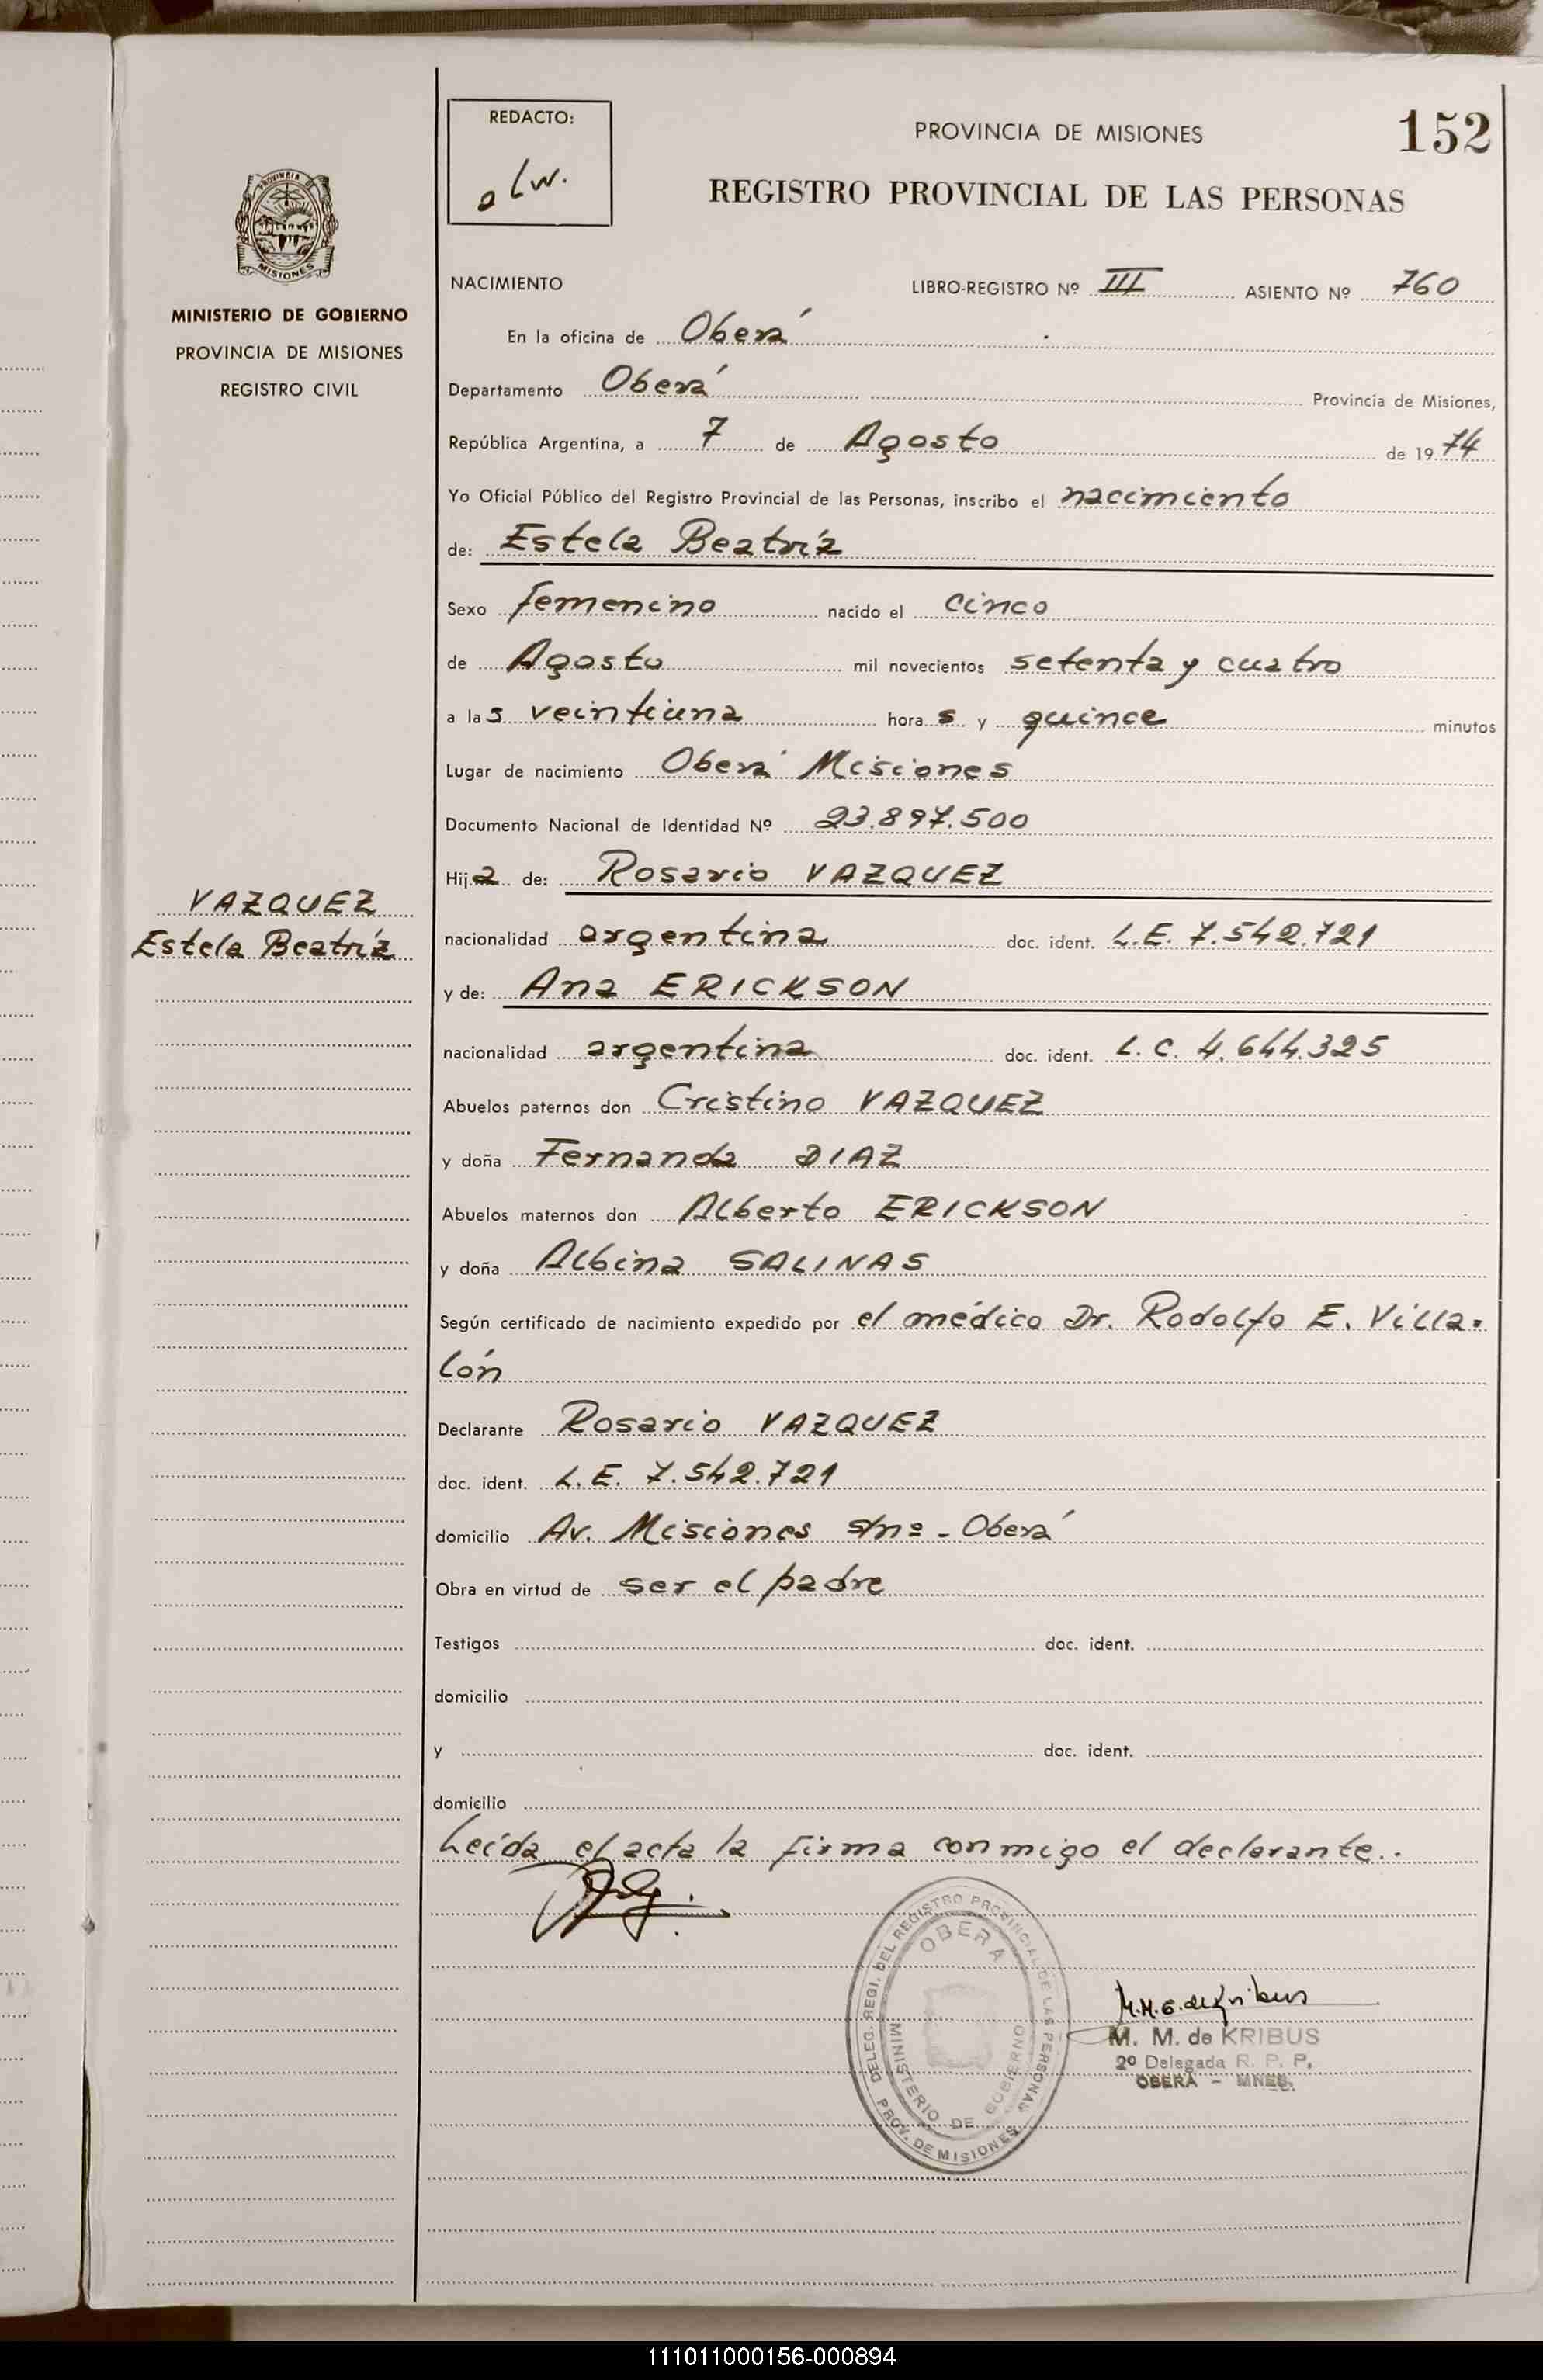 152
REDACTO:
PROVINCIA DE MISIONES
REGISTRO PROVINCIAL DE LAS PERSONAS
PROVINCIA
MISIONES
MINISTERIO DE GOBIERNO
PROVINCIA DE MISIONES
REGISTRO CIVIL
NACIMIENTO LIBRO-REGISTRO Nº III ASIENTO Nº 760
En la oficina de Oberá
Departamento Oberá Provincia de Misiones,
República Argentina, a 7 de Agosto de 19 74
Yo Oficial Público del Registro Provincial de las Personas, inscribo el nacimiento
de: Estela Beatríz
Sexo femenino nacido el cinco
de Agosto mil novecientos setenta y cuatro
a las veintiuna horas y quince minutos
Lugar de nacimiento Oberá Misiones
Documento Nacional de Identidad Nº 23.897.500
Hija de: Rosario VAZQUEZ
VAZQUEZ
Estela Beatríz
nacionalidad argentina doc. ident. L.E. 7.542.721
y de: Ana ERICKSON
nacionalidad argentina doc. ident. L.C. 4.644.325
Abuelos paternos don Cristino VAZQUEZ
y doña Fernanda DIAZ
Abuelos maternos don Alberto ERICKSON
y doña Albina SALINAS
Según certificado de nacimiento expedido por el médico Dr. Rodolfo E. Villa-
lón
Declarante Rosario VAZQUEZ
doc. ident. L.E. 7.542.721
domicilio Av. Misiones s/nº - Oberá
Obra en virtud de ser el padre
Testigos doc. ident.
domicilio
y doc. ident.
domicilio
Leída el acta la firma conmigo el declarante..
DELEG. REGI. DEL REGISTRO PROVINCIAL DE LAS PERSONAS
OBERA
MINISTERIO DE GOBIERNO
PROV. DE MISIONES
M. M. de KRIBUS
2º Delegada R. P. P.
OBERA - MNES.
111011000156-000894